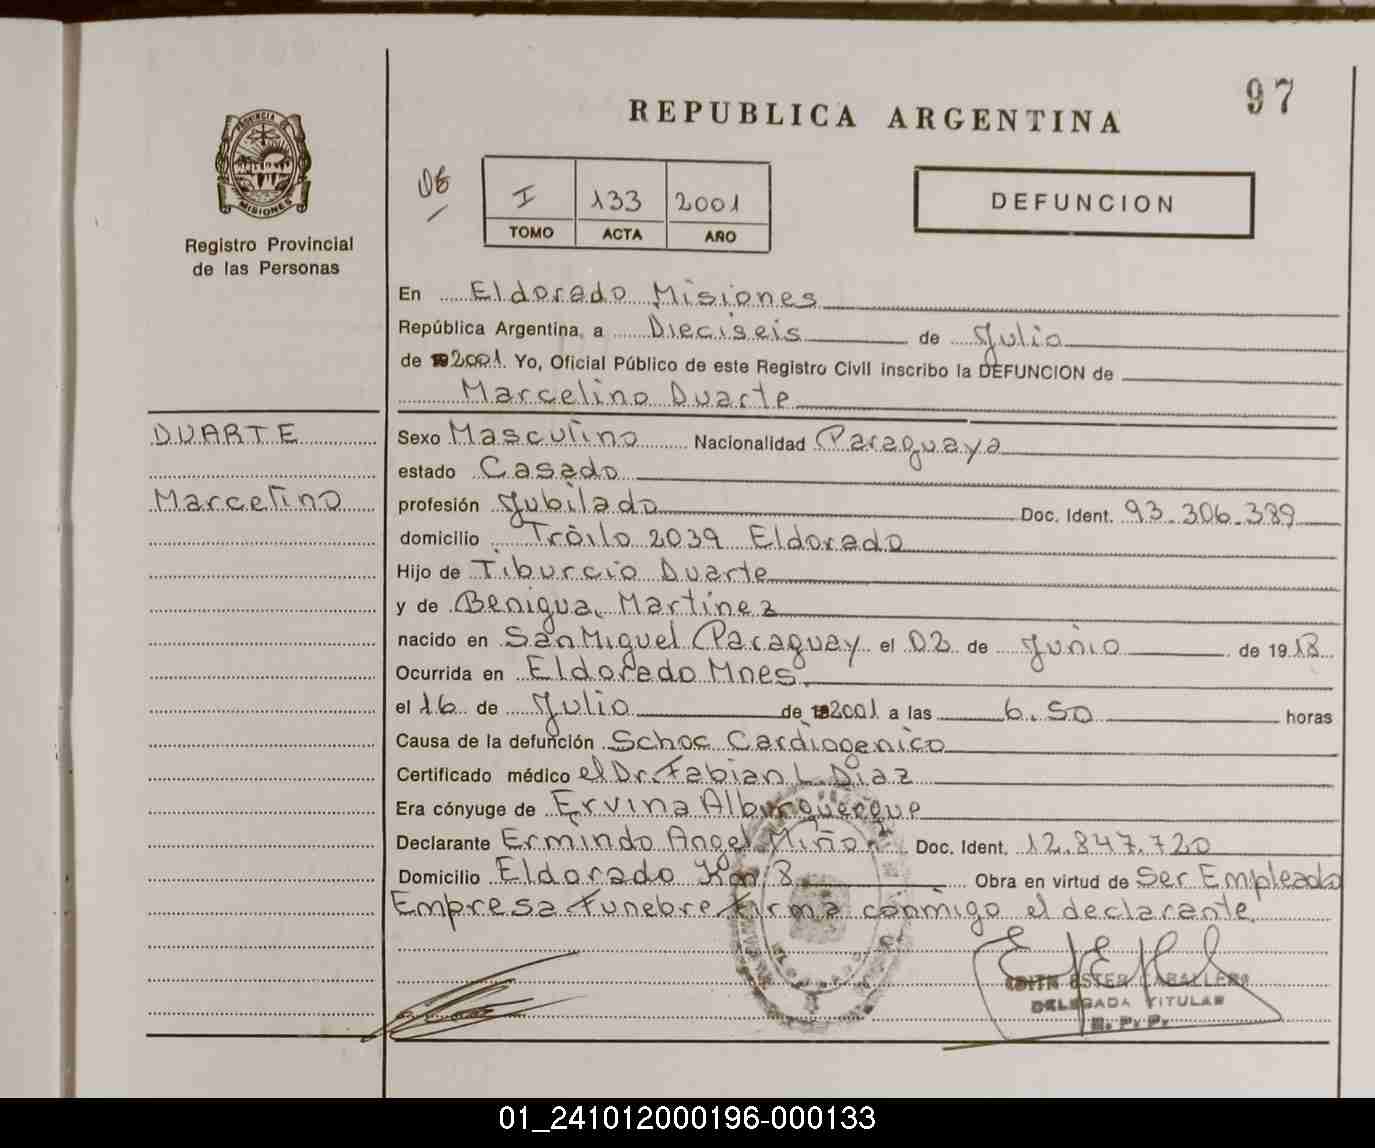 97
REPUBLICA ARGENTINA
PROVINCIA DE
MISIONES
Registro Provincial
de las Personas
I 133 2001
TOMO ACTA AÑO
DEFUNCION
En Eldorado Misiones
República Argentina, a Dieciseis de Julio
de 2001. Yo, Oficial Público de este Registro Civil inscribo la DEFUNCION de
Marcelino Duarte
DUARTE
Marcelino
Sexo Masculino Nacionalidad Paraguaya
estado Casado
profesión Jubilado Doc. Ident. 93.306.389
domicilio Troilo 2039 Eldorado
Hijo de Tiburcio Duarte
y de Benigua Martinez
nacido en San Miguel Paraguay el 02 de Junio de 1918
Ocurrida en Eldorado Mnes.
el 16 de Julio de 2001 a las 6.50 horas
Causa de la defunción Schoc Cardiogenico
Certificado médico el Dr. Fabian L. Diaz
Era cónyuge de Ervina Alburquerque
Declarante Ermindo Angel Miño Doc. Ident. 12.847.720
Domicilio Eldorado Km 8 Obra en virtud de Ser Empleado
Empresa Funebre firma conmigo el declarante
EDITH ESTER CABALLERO
DELEGADA TITULAR
R. P. P.
01_241012000196-000133